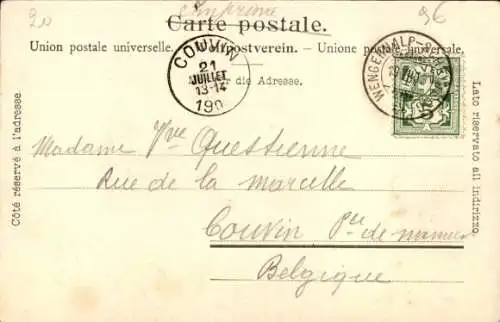 20
Imprimé
96
Carte postale.
Union postale universelle. Weltpostverein. Unione postale universale.
Nur für die Adresse.
COUVIN
21
JUILLET
13-14
190
WENGERNALP-SCHEIDEGG
5
Côté réservé à l'adresse.
Lato riservato all indirizzo.
Madame Vve Questienne
Rue de la Marcelle
Couvin Pce de Namur
Belgique